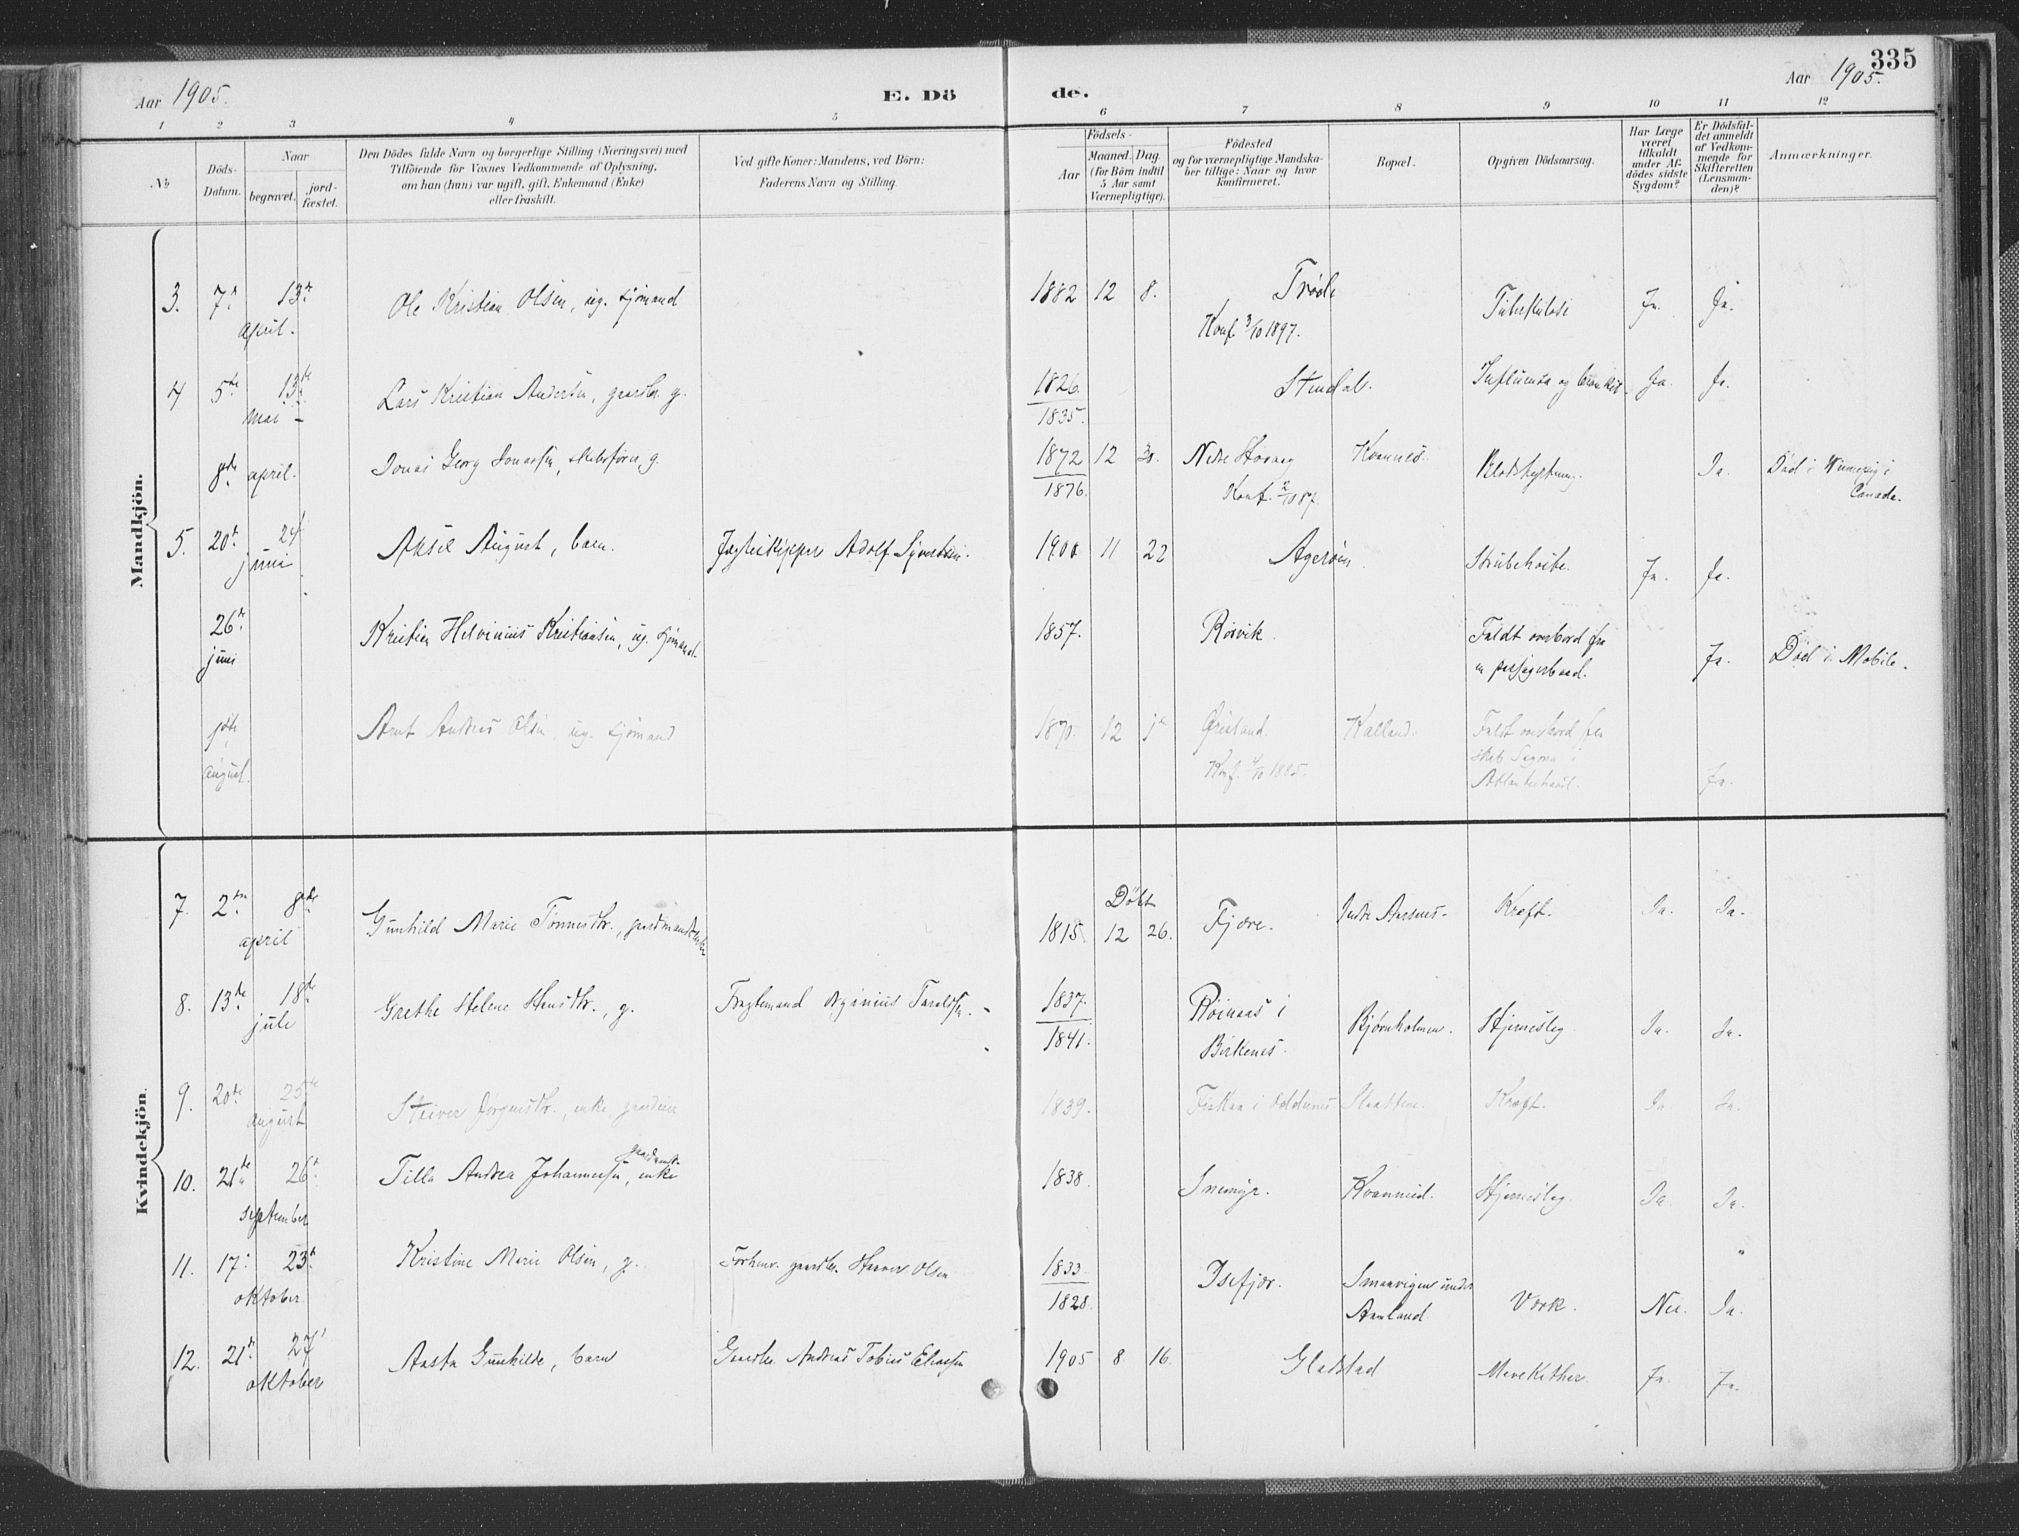 335
Aar 1905.
E. Dö
de.
Aar 1905.
1 2 3 4 5 6 7 8 9 10 11 12
No
Döds-Datum.
Naar
begravet.
jord-fæstet.
Den Dödes fulde Navn og borgerlige Stilling (Næringsvei) med
Tilföiende for Voxnes Vedkommende af Oplysning,
om han (hun) var ugift, gift, Enkemand (Enke)
eller fraskilt.
Ved gifte Koner: Mandens, ved Börn:
Faderens Navn og Stilling.
Födsels-
Aar
Maaned. Dag
(for Börn indtil
5 Aar samt
Værnepligtige).
Födested
og for værnepligtige Mandska-
ber tillige: Naar og hvor
konfirmeret.
Bopæl.
Opgiven Dödsaarsag.
Har Læge
været
tilkaldt
under Af-
dödes sidste
Sygdom?
Er Dödsfal-
det anmeldt
af Vedkom-
mende for
Skifteretten
(Lensman-
den)?
Anmærkninger.
Mandkjön.
3. 7de 13de april. Ole Kristian Olsen, ug. sjømand 1882 12 8. Konf. 3/10 1897. Tuberkulose Ja. Ja.
4 5te 13de mai Lars Kristian Andersen, gaardbr. g. 1826. 1835. Stendal. Influensa og Ja. Ja.
8de april. Jonas Georg Jonassen, skibsfører, g. 1872 1876. 12 30. Nedre Konf. 2/10 87. Kvannes. Blodstyrtning. Ja. Død i Winnepig i Canada.
5. 20de 24 juni Aksel August, barn. Jagteskipper Adolf Syvertsen. 1900 11 22 Agerøen Strubehoste. Ja. Ja.
26de juni Kristian Helvinius Kristiansen, ug. sjømand. 1857. Rørvik. Faldt overbord fra en Ja. Død i Mobile.
august. Arnt Andreas Olsen, ug. sjømand 1870. 12 Konf. 4/10 1885. Kalland. Faldt overbord fra skib i Atlanterhavet. Ja.
Kvindekjön.
7. 2den 8de april Gunhild Marie Tønnesdtr., gaardmandsenke 1815 Døbt 12 26. Fjære. Indre Kræft. Ja. Ja.
8. 13de 18de juli Grethe Helene Hansdtr., g. Fragtemand Taraldsen. 1837. 1841. i Birkenes. Bjørnholmen. Hjerneslag Ja. Ja.
9. 20de 25de august Jørgensdtr., enke, 1839. i Oddernes Kræft. Ja. Ja.
10. 21de 26de september Tilla Andrea Johannessen, gaardmands-enke 1838. Snemyr. Hjerneslag. Ja. Ja.
11. 17. 23de oktober. Kristine Marie Olsen, g. Forhenv. gaardbr. Olsen 1833. 1828. Isefjær. Smaavigen under Aamland. Værk. Nei. Ja.
12. 21de 27 oktober Aasta Gunhilde, barn Gaardbr. Andreas Tobias Eliassen 1905 8. 16. Gladstad Ja. Ja.